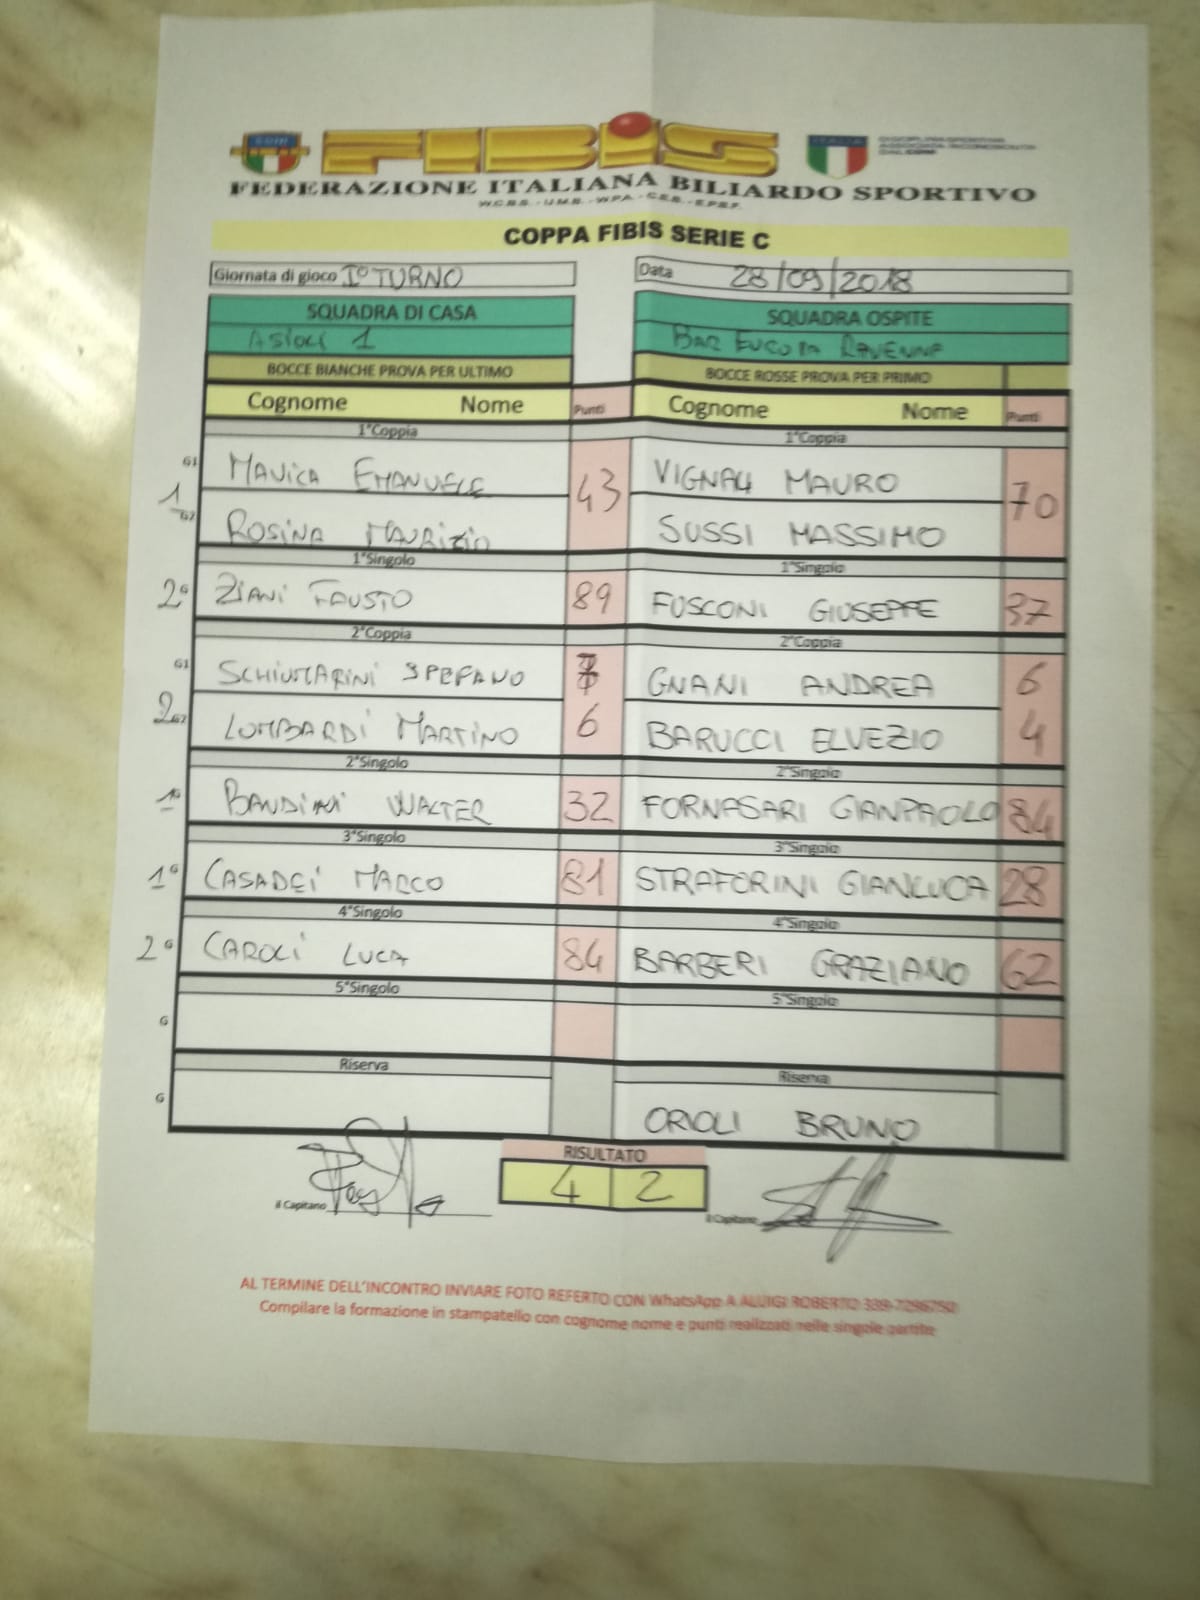 CONI
FIBiS
ITALIA
DISCIPLINA SPORTIVA
ASSOCIATA RICONOSCIUTA
DAL CONI
FEDERAZIONE ITALIANA BILIARDO SPORTIVO
W.C.B.S. - U.M.B. - W.P.A. - C.E.B. - E.P.B.F.
COPPA FIBIS SERIE C
Giornata di gioco I° TURNO
Data 28/09/2018
SQUADRA DI CASA SQUADRA OSPITE
1 BAR EUROPA RAVENNA
BOCCE BIANCHE PROVA PER ULTIMO BOCCE ROSSE PROVA PER PRIMO
Cognome Nome Punti Cognome Nome Punti
1°Coppia 1°Coppia
G1 MAVICA EMANUELE 43 VIGNALI MAURO 70
1 G2 ROSINA MAURIZIO SUSSI MASSIMO
1°Singolo 1°Singolo
2 G ZIANI FAUSTO 89 FUSCONI GIUSEPPE 37
2°Coppia 2°Coppia
G1 SCHIUMARINI STEFANO GNANI ANDREA 6
2 G2 LOMBARDI MARTINO 6 BARUCCI ELVEZIO 4
2°Singolo 2°Singolo
1 G BANDINI WALTER 32 FORNASARI GIANPAOLO 84
3°Singolo 3°Singolo
1 G CASADEI MARCO 81 STRAFORINI GIANLUCA 28
4°Singolo 4°Singolo
2 G CAROLI LUCA 84 BARBERI GRAZIANO 62
5°Singolo 5°Singolo
G
Riserva Riserva
G ORIOLI BRUNO
RISULTATO
4 2
il Capitano il Capitano
AL TERMINE DELL'INCONTRO INVIARE FOTO REFERTO CON WhatsApp A ALUIGI ROBERTO 339-7296750
Compilare la formazione in stampatello con cognome nome e punti realizzati nelle singole partite